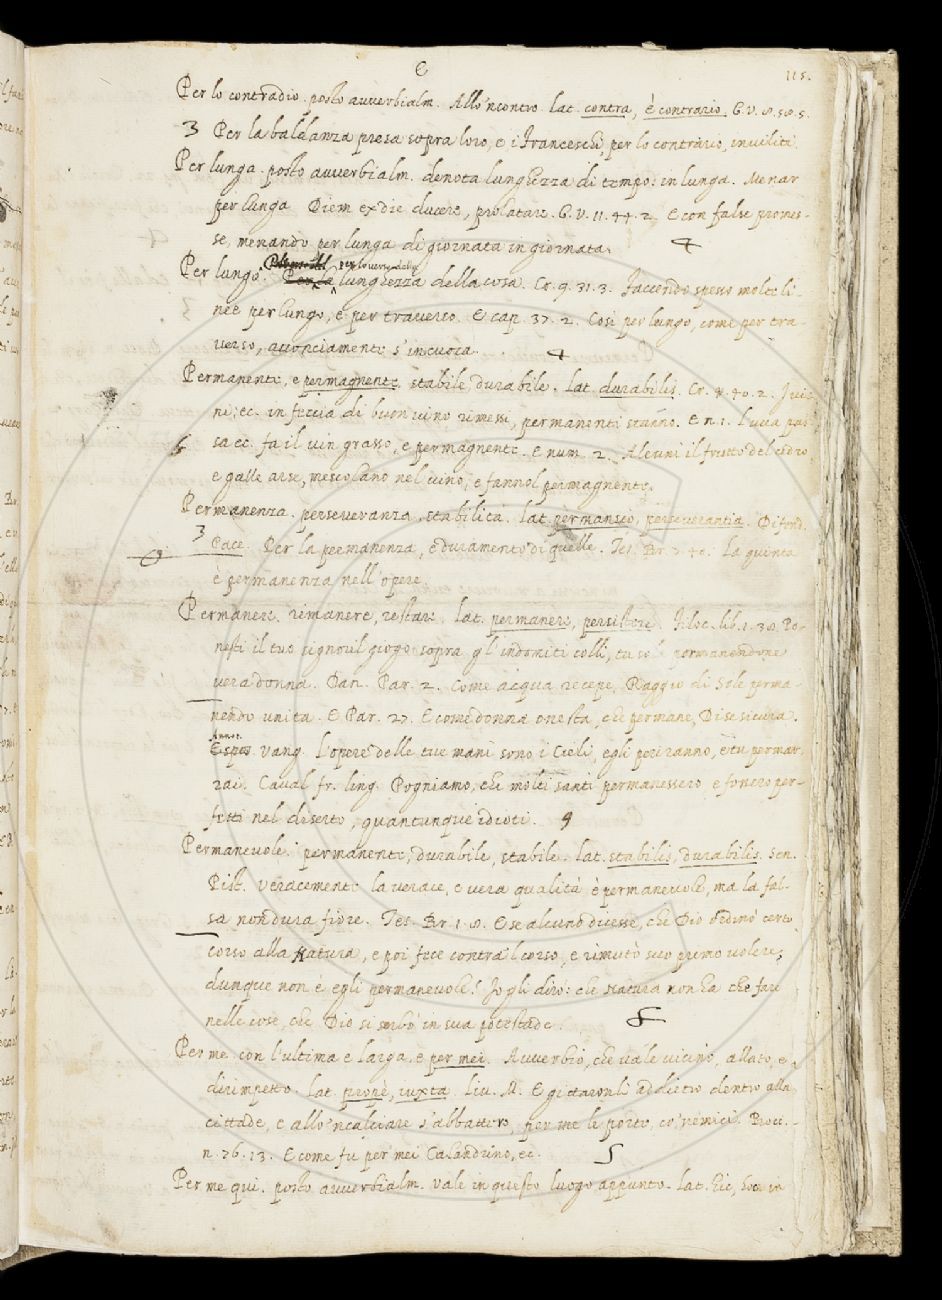 E
115.
Per lo contradio. posto avverbialm. Allo 'ncontro. lat. contra, è contrario. G. V. 8. 58. 5.
3 Per la baldanza presa sopra loro, e i Franceschi, per lo contrario, inviliti.
Per lunga. posto avverbialm. denota lunghezza di tempo: in lunga. Menar
per lunga Diem ex die ducere, prolatare. G. V. 11. 44. 2. E con false promes-
se, menando per lunga di giornata in giornata. 4
Per lungo. per lo verso della
lunghezza della cosa. Cr. 9. 31. 3. Faccendo spesso molte li-
nee per lungo, e per traverso. E cap. 37. 2. Così per lungo, come per tra-
verso, acconciamente s'incuoca. 4
Permanente, e permagnente. stabile, durabile. lat. durabilis. Cr. 4. 40. 2. I vi-
ni: ec. in feccia di buon vino rimessi, permanenti stanno. E n. 1. L'uva pas-
6 sa ec. fa il vin grasso, e permagnente. E num. 2. Alcuni il frutto del cedro
e galle arse, mescolano nel vino, e fannol permagnente.
Permanenza. perseveranza, stabilità. lat. permansio, perseverantia. Difend.
3 Pace. Per la permanenza, e duramento di quelle. Tes. Br. 7. 40. La quinta
è permanenza nell'opere.
Permanere. rimanere, restare. lat. permanere, persistere. Filoc. lib. 1. 38. Po-
nesti il tuo signoril giogo sopra gl'indomiti colli, tu sol permanendone
vera donna. Dan. Par. 2. Come acqua recepe, Raggio di Sole perma-
nendo unita. E Par. 27. E come donna onesta, che permane, Di se sicura.
Annot.
vang. L'opere delle tue mani sono i Cieli, egli periranno, e tu permar-
rai. Caval. fr. ling. Pogniamo, che molti santi permanessero e fossero per-
fetti nel diserto, quantunque idioti. 9
Permanevole. permanente, durabile, stabile. lat. stabilis, durabilis. Sen.
Pist. Veracemente la verace, e vera qualità è permanevole, ma la fal-
sa non dura fiore. Tes. Br. 1. 8. E se alcuno dicesse, che Dio ordinò certo
corso alla Natura, e poi fece contra 'l corso, e rimutò suo primo volere;
dunque non è egli permanevole? Io gli dirò: che Natura non ha che fare
nelle cose, che Dio si serbò in sua potestade.
Per me. con l'ultima e larga, e per mei. Avverbio, che vale vicino, allato, e
dirimpetto. lat. propè, iuxta. Liv. M. E gittaronli addietro dentro alla
cittade, e allo 'ncalciare s'abbattero, per me le porte, co' nemici. Bocc.
n. 76. 13. E come fu per mei Calandrino, ec.
Per me qui. posto avverbialm. vale in questo luogo appunto. lat. hic, hoc in